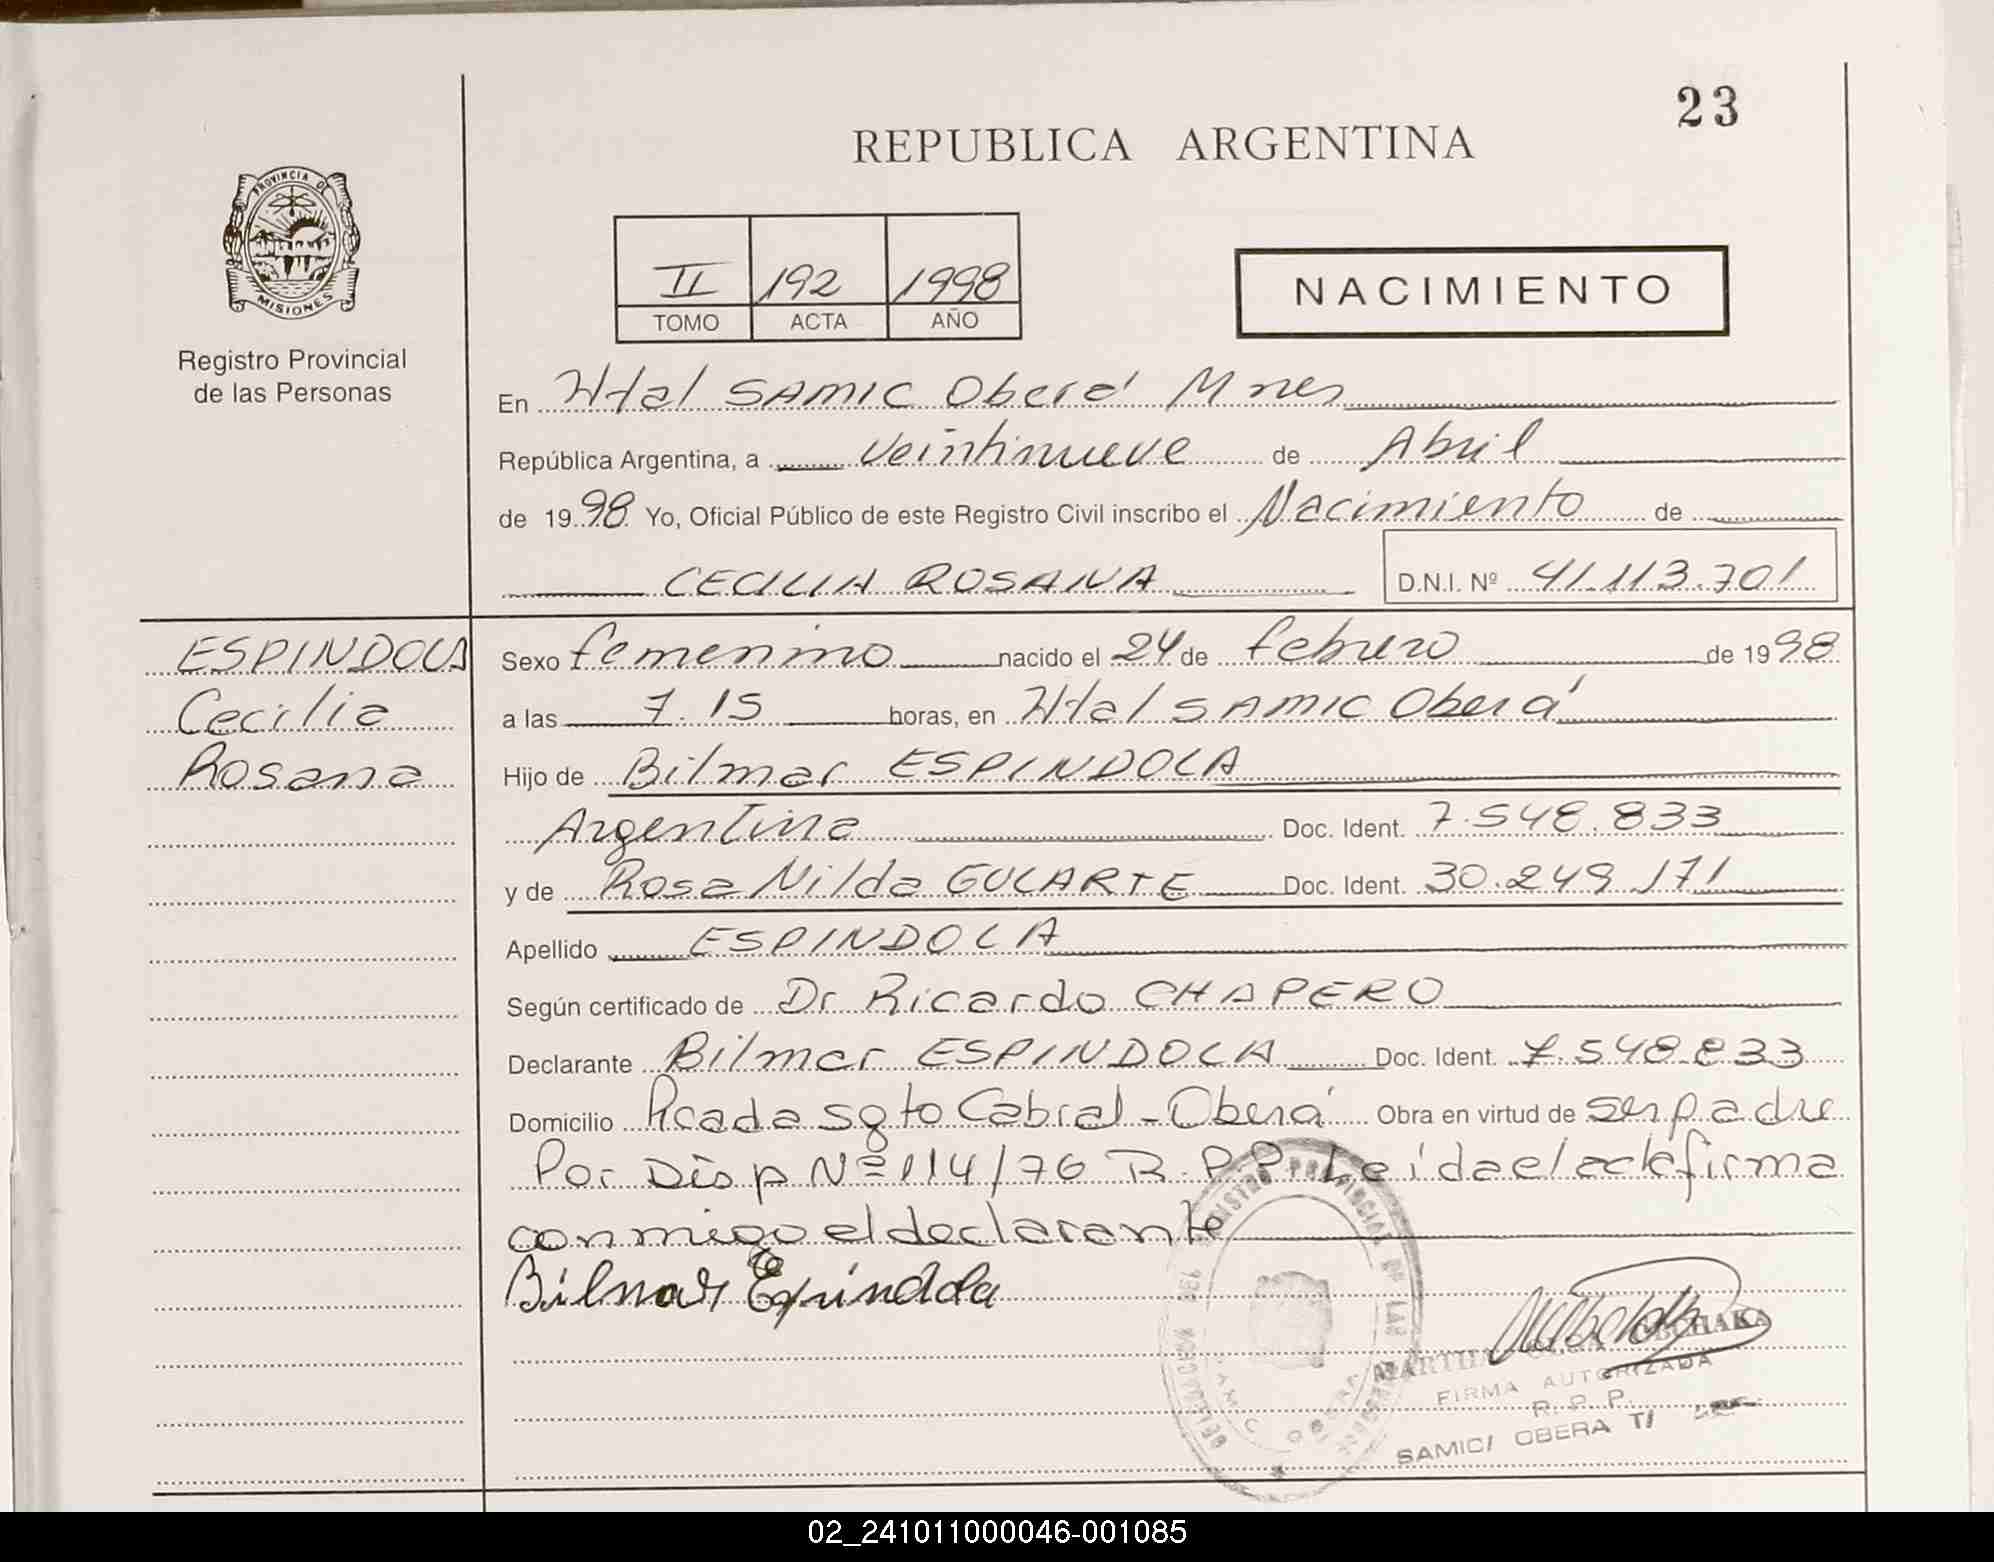 23
REPUBLICA ARGENTINA
PROVINCIA DE
MISIONES
Registro Provincial
de las Personas
II 192 1998
TOMO ACTA AÑO
NACIMIENTO
En Htal SAMIC Oberá Mnes
República Argentina, a veintinueve de Abril
de 1998 Yo, Oficial Público de este Registro Civil inscribo el Nacimiento de
CECILIA ROSANA D.N.I. Nº 41.113.701
ESPINDOLA
Cecilia
Rosana
Sexo femenino nacido el 24 de febrero de 1998
a las 7.15 horas, en Htal SAMIC Oberá
Hijo de Bilmar ESPINDOLA
Argentina Doc. Ident. 7.548.833
y de Rosa Nilda GULARTE Doc. Ident. 30.249.171
Apellido ESPINDOLA
Según certificado de Dr Ricardo CHAPERO
Declarante Bilmar ESPINDOLA Doc. Ident. 7.548.833
Domicilio Picada sgto Cabral - Oberá Obra en virtud de ser padre
Por Disp Nº 114/76 R.P.P. Leida el acta firma
conmigo el declarante
Bilmar Espindola
MARTHA OLGA
FIRMA AUTORIZADA
R. P. P.
SAMIC/ OBERA T/
02_241011000046-001085